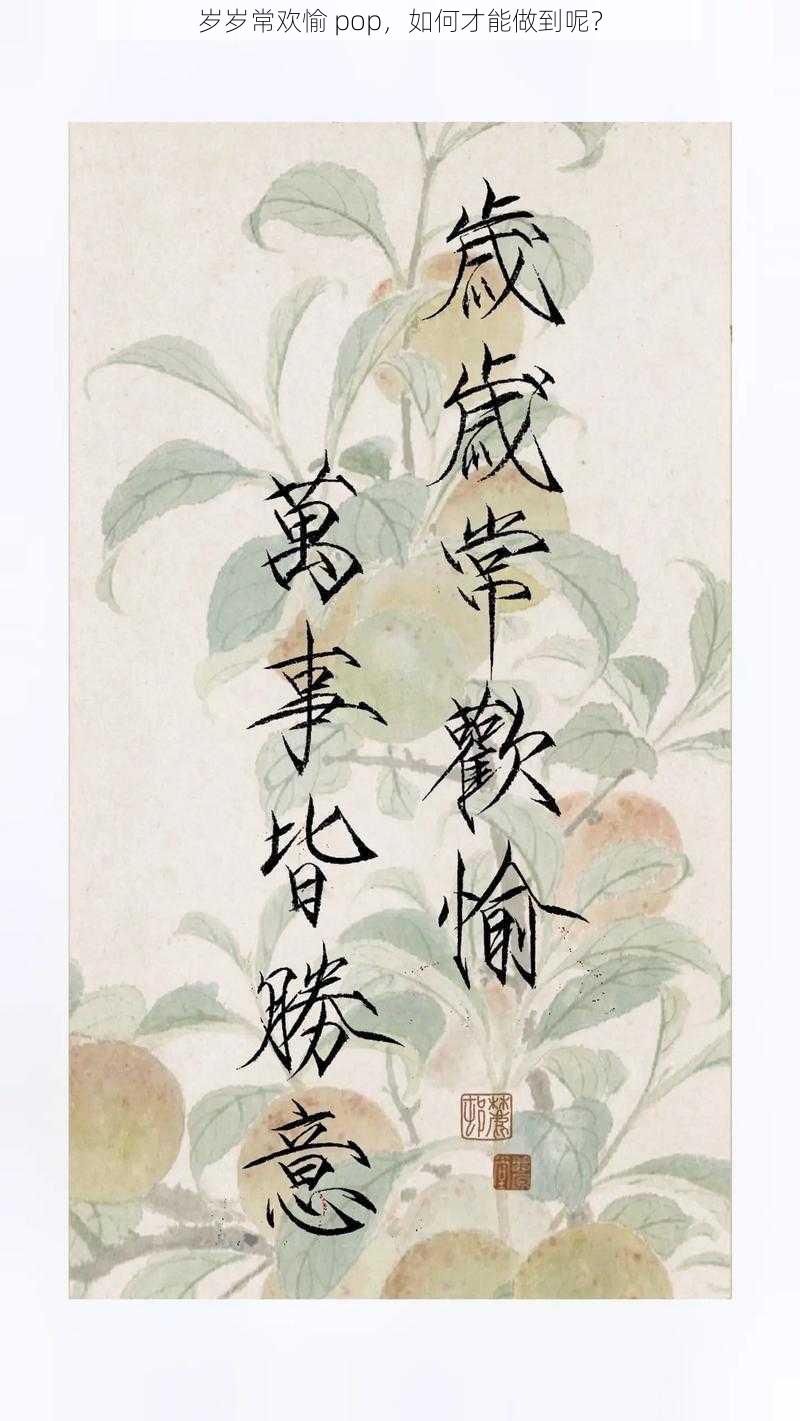 岁岁常欢愉 pop，如何才能做到呢？
歲歲常歡愉
萬事皆勝意